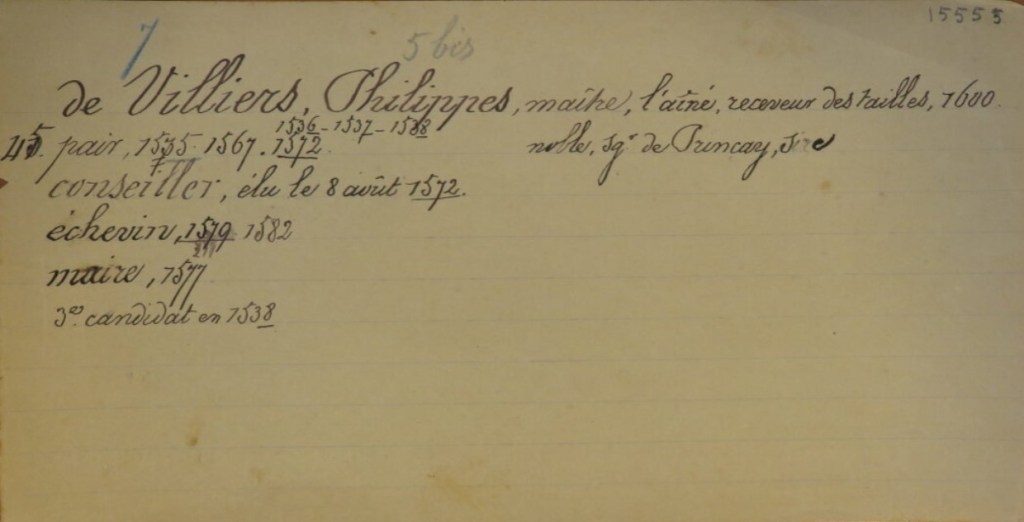 15555
7 5 bis
de Villiers, Philippes, maître, l'aîné, receveur des tailles, 1600.
1536-1537-1588
45. pair, 1535. 1567. 1572. noble, sgr de Princay, sire
conseiller, élu le 8 août 1572.
échevin, 1579. 1582
maire, 1577
3e. candidat en 1538